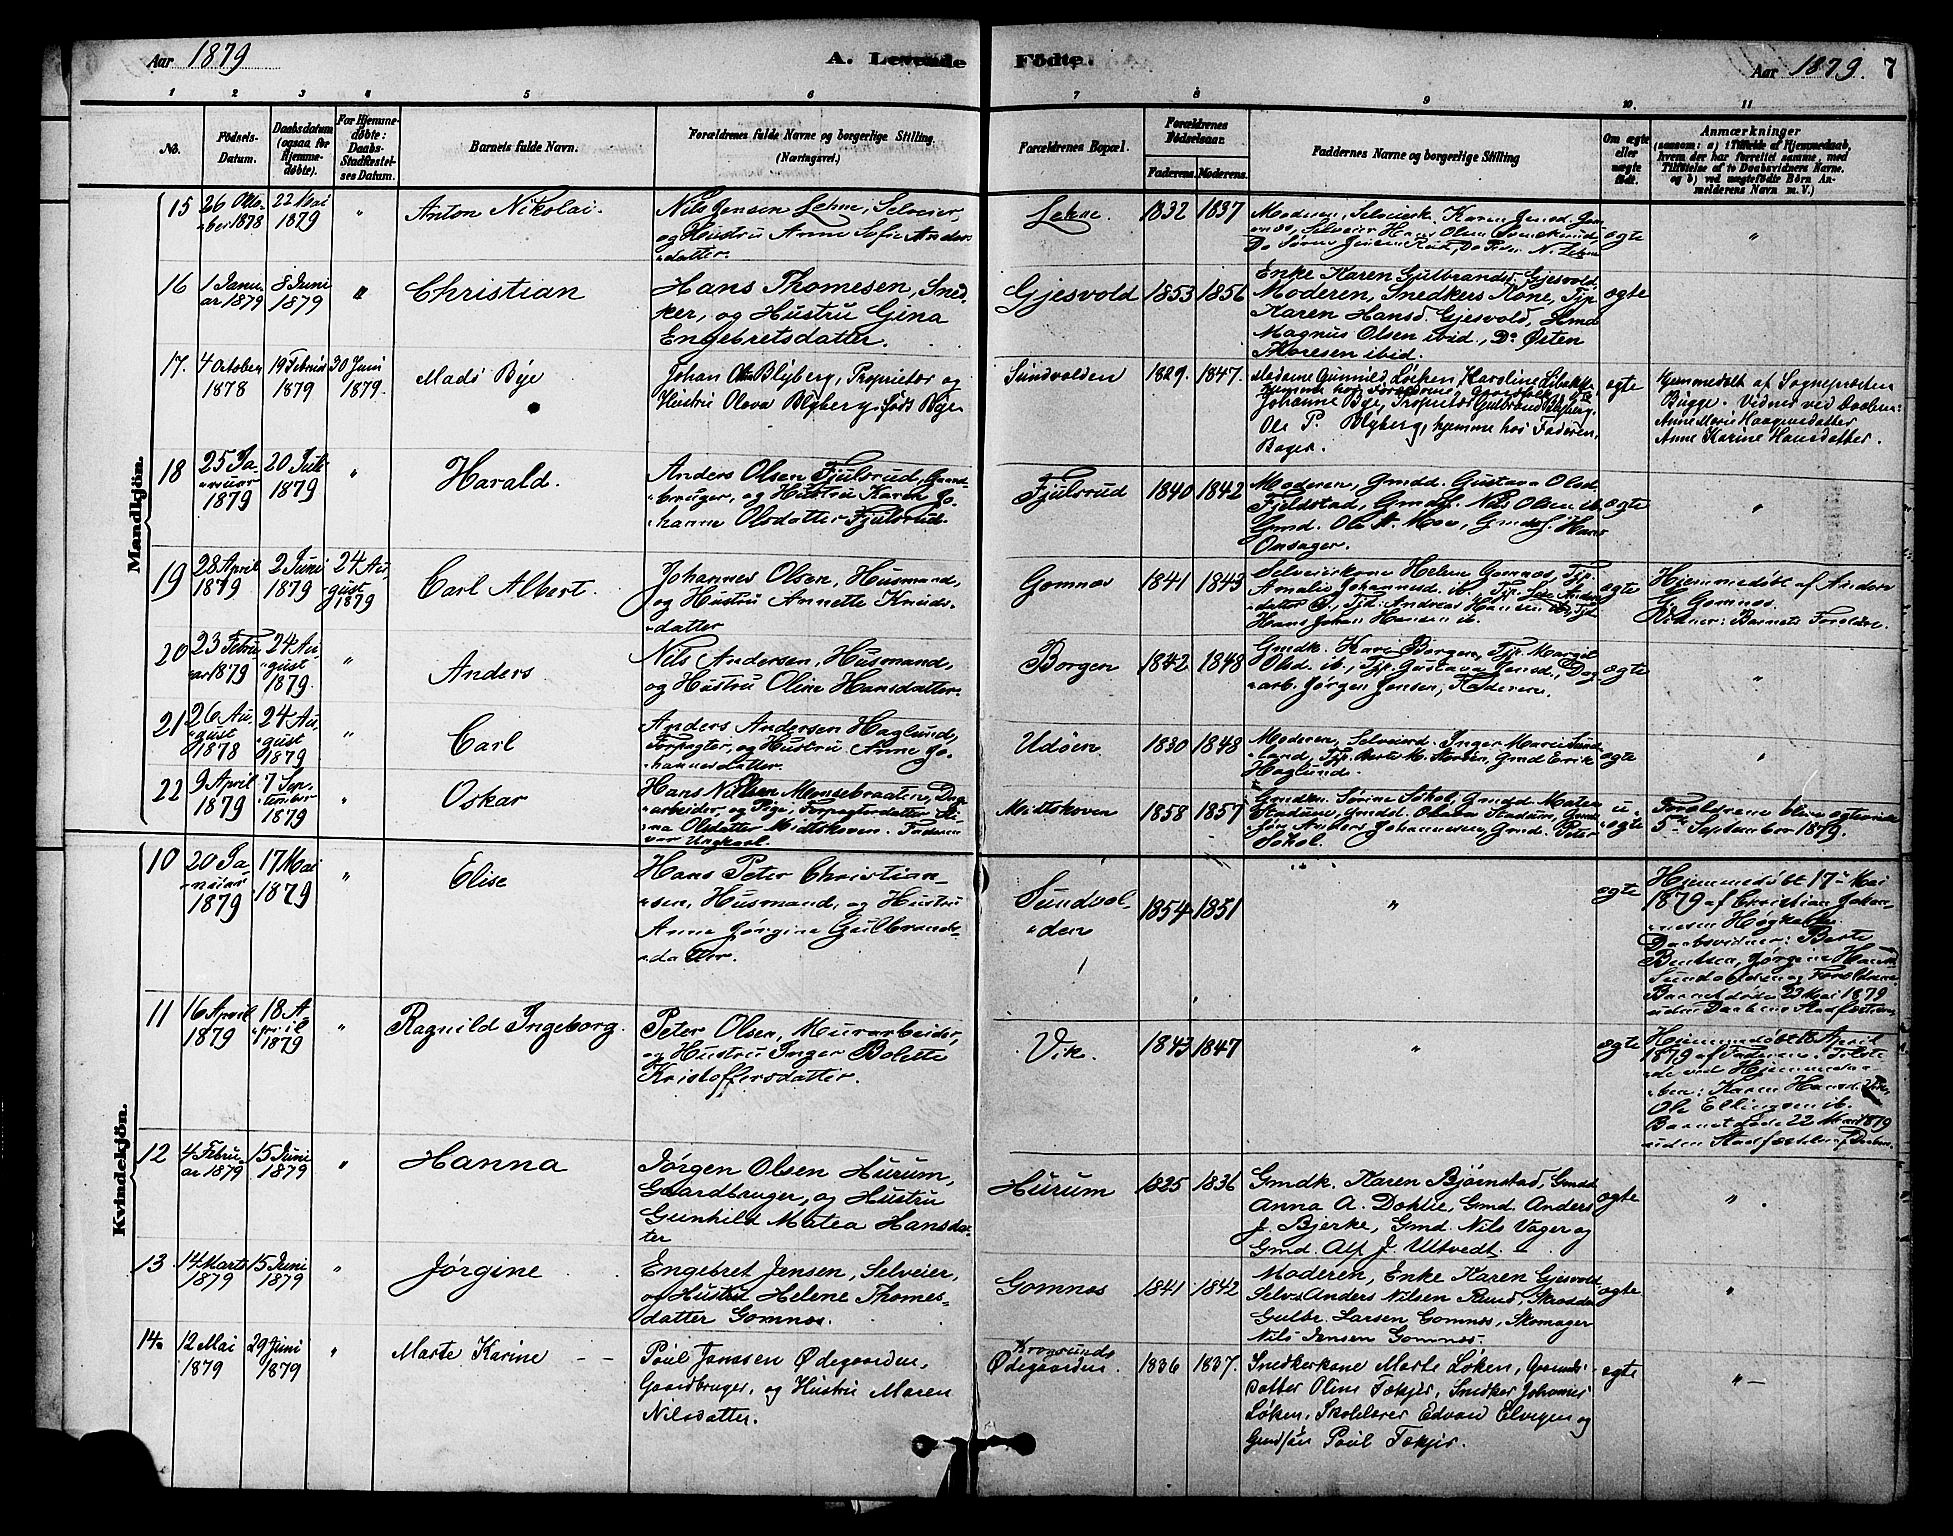 Aar 1879
A. Levende Födte.
Aar 1879. 7
1 2 3 4 5 6 7 8 9 10 11
No.
Födsels-
Datum.
Daabsdatum
(ogsaa for
Hjemme-
døbte).
For Hjemme-
døbte:
Daabs-
Stadfæstel-
ses Datum.
Barnets fulde Navn.
Forældrenes fulde Navne og borgerlige Stilling
(Næringsvei.)
Forældrenes Bopæl.
Forældrenes
Födselsaar.
Faderens. Moderens.
Faddernes Navne og borgerlige Stilling
Om ægte
eller
uægte
født.
Anmærkninger
(saasom: a) i Tilfælde af Hjemmedaab,
hvem der har forrettet samme, med
Tilföielse af to Daabsvidners Navne.
og b) ved uægtefödte Börn An-
melderens Navn m. V.)
Mandkjön.
15
26 Octo-
ber 1878
22 Mai
1879
"
Anton Nikolai.
Nils Jensen Lehne, Selveier,
og Hustru Anne Sofie Anders-
datter.
Lehne.
1832 1837
Moderen, Selveierk. Karen Jensd.
Selveier Hans Olsen
Do Søren Jensen Do Peder N. Lehne
ægte
"
16
1 Janu-
ar 1879
8 Juni
1879
"
Christian
Hans Thomesen, Sned-
ker, og Hustru Gina
Engebretsdatter.
Gjesvold
1853 1856
Enke Karen Gulbrandsd. Gjesvold
Moderen, Snedkers Kone, Tjp.
Karen Hansd. Gjesvold,
Magnus Olsen ibid, Do Østen
Thoresen ibid.
ægte
17.
4 October
1878
19 Februar
1879
30 Juni
1879.
Mads Bye
Johan Blyberg, Proprietær og
Hustru Olava Blyberg, født Bye.
Sundvolden
1829. 1847.
Madame Gunnild Løken, Karoline
hjemme hos Forældrene
Johanne Bye, Proprietær Gulbrand Blyberg.
Ole P. Blyberg, hjemme hos Faderen,
Bager.
ægte
Hjemmedøbt af Sognepræsten
Bugge. Vidner ved Daaben:
Anne Marie Haagensdatter
Anne Karine Hansdatter.
18
25 Ja-
nuar
1879
20 Juli
1879
"
Harald.
Anders Olsen Fjulsrud, Gaard-
bruger, og Hustru Karen Jo-
hanne Olsdatter Fjulsrud.
Fjulsrud
1840 1842
Moderen, Gmdd. Gustava Olsd.
Fjeldstad, Gmdsf. Nils Olsen ib.
Gmd. Ole A. Moe, Gmdsf. Hans
Onsager.
ægte
"
19
28 April
1879
2 Juni
1879
24 Au-
gust
1879
Carl Albert.
Johannes Olsen, Husmand,
og Hustru Annette Knuds-
datter
Gomnæs
1841 1843
Selveierkone Helene Gomnæs, Tjp.
Amalie Johannesd. ib., Tjp.
datter ib, Tjk. Andreas Hansen ib, Tjk.
Hans Johan Hansen ib.
ægte
Hjemmedøbt af Anders
G. Gomnæs.
Vidner: Barnets Forældre.
20
23 Febru-
ar 1879
24 Au-
gust
1879.
"
Anders
Nils Andersen, Husmand,
og Hustru Oline Hansdatter.
Borgen
1842 1848
Gmdk. Kari Borgen, Tjp. Margit
Olsd. ib., Tjp. Gustava Jensd., Dag-
arb. Jørgen Jensen, Faderen.
ægte
"
21
26 Au-
gust
1878
24 Au-
gust
1879
"
Carl
Anders Andersen Haglund,
Forpagter, og Hustru Anne Jo-
hannesdatter.
Udøen
1830 1848
Moderen, Selveierd. Inger Marie
land, Tjp. Marte M. Gmd Erik
Haglund.
ægte
"
22
9 April
1879
7 Sep-
tember
1879
"
Oskar
Hans Nilsen Monsebraaten, Dag-
arbeider, og Pige, Forpagterdatter
Olsdatter Midtskoven. Faderen
var Ungkarl.
Midtskoven
1858 1857
Gmdkn. Sørine Sokol, Gmdd Matea
Stadum, Gmdd. Olava Stadum,
Anders Johannesen, Gmd. Peter
Sokol.
u-
ægte
Forældrene blev ægteviede
5te September 1879.
Kvindekjön.
10
20 Ja-
nuar
1879
17 Mai
1879
"
Elise
Hans Peter Christian-
sen, Husmand, og Hustru
Anne Jørgine Gulbrands-
datter.
Sundvol-
den
1854 1851
"
ægte
Hjemmedøbt 17de Mai
1879 af Christian Johan-
nesen
Daabsvidner: Berte
Bentsen, Jørgen
Sundvolden og Forældrene.
Barnet døde 23 Mai 1879
uden Daabens Stadfæstelse.
11
16 April
1879
18 A-
pril
1879
"
Ragnild Ingeborg.
Peter Olsen, Murarbeider,
og Hustru Inger Bolette
Kristoffersdatter.
Vik.
1843 1847
"
ægte
Hjemmedøbt 18 April
1879 af Faderen. Tilste-
de ved Hjemmedaa-
ben: Karen Hansd.
Ole Ellingsen ib.
Barnet døde 22 1879
uden Stadfæstelse af Daaben.
12
4 Febru-
ar 1879
15 Juni
1879
"
Hanna
Jørgen Olsen Hurum,
Gaardbruger, og Hustru
Gunhild Matea Hansdat-
ter
Hurum
1825 1836
Gmdk. Karen Bjørnstad, Gmdd
Anna A. Doklie, Gmd. Anders
J. Bjerke, Gmd. Nils Vager og
Gmd. Alf J. Ultvedt.
ægte
"
13
14 Marts
1879
15 Juni
1879
"
Jørgine
Engebret Jensen, Selveier,
og Hustru Helene Thomes-
datter Gomnæs.
Gomnæs
1841 1842
Moderen, Enke Karen Gjesvold,
Selv. Anders Nilsen Rund, Skrædder
Gulbr. Larsen Gomnæs, Skomager
Nils Jensen Gomnæs.
ægte
"
14.
12 Mai
1879
29 Juni
1879
"
Marte Karine
Poul Janssen Ødegaarden,
Gaardbruger, og Hustru Maren
Nilsdatter.
Kroksunds
Ødegaarden.
1836 1837.
Snedkerkone Marte Løken, Gaardm.
datter Oline Fekjer, Snedker Johannes
Løken, Skolelærer Edvard Elvigen og
Gmdsøn Poul Fekjer.
ægte
"